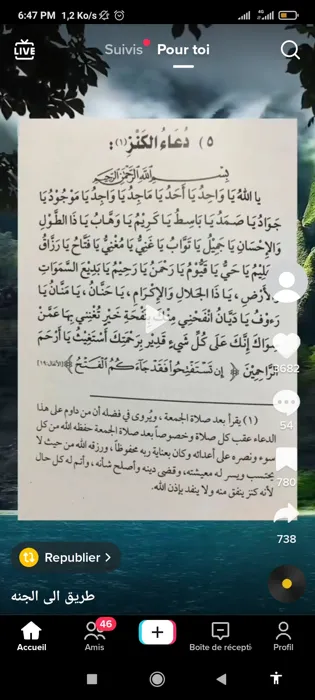 6:47 PM 1,2 Ko/s
4G
LIVE
Suivis
Pour toi
٥) دُعَاءُ الكَنْزِ(١):
بِسْمِ اللَّهِ الرَّحْمَنِ الرَّحِيمِ
يا اللهُ يَا وَاحِدُ يَا أَحَدُ يَا مَاجِدُ يَا وَاجِدُ يَا مَوْجُودُ يَا
جَوَادُ يَا صَمَدُ يَا بَاسِطُ يَا كَرِيْمُ يَا وَهَّابُ يَا ذَا الطَّوْلِ
وَالإِحْسَانِ يَا جَمِيْلُ يَا تَوَّابُ يَا غَنِيُّ يَا مُغْنِيُّ يَا فَتَّاحُ يَا رَزَّاقُ
عَلِيْمُ يَا حَيُّ يَا قَيُّوْمُ يَا رَحْمَنُ يَا رَحِيْمُ يَا بَدِيْعَ السَّمَوَاتِ
وَالأَرْضِ، يَا ذَا الجَلَالِ وَالإِكْرَامِ، يَا حَنَّانُ، يَا مَنَّانُ يَا
رَءُوْفُ يَا دَيَّانُ انْفَحْنِي مِنْكَ بِنَفْحَةِ خَيْرٍ تُغْنِنِي بِهَا عَمَّنْ
سِوَاكَ إِنَّكَ عَلَى كُلِّ شَيءٍ قَدِيْرٌ بِرَحْمَتِكَ أَسْتَغِيْثُ يَا أَرْحَمَ
الرَّاحِمِيْنَ ﴿إِن تَسْتَفْتِحُوا فَقَدْ جَاءَكُمُ الْفَتْحُ﴾ [الأنفال:١٩]
(١) يقرأ بعد صلاة الجمعة، ويُروى في فضله أن من داوم على هذا
الدعاء عقب كل صلاة وخصوصاً بعد صلاة الجمعة حفظه الله من كل
سوء ونصره على أعدائه وكان بعناية ربه محفوظاً، ورزقه الله من حيث لا
يحتسب ويسر له معيشته، وقضى دينه وأصلح شأنه، وأتم له كل حال
لأنه كنز ينفق منه ولا ينفد بإذن الله.
3682
54
780
738
Republier >
طريق الى الجنه
46
Accueil
Amis
Boîte de récepti
Profil